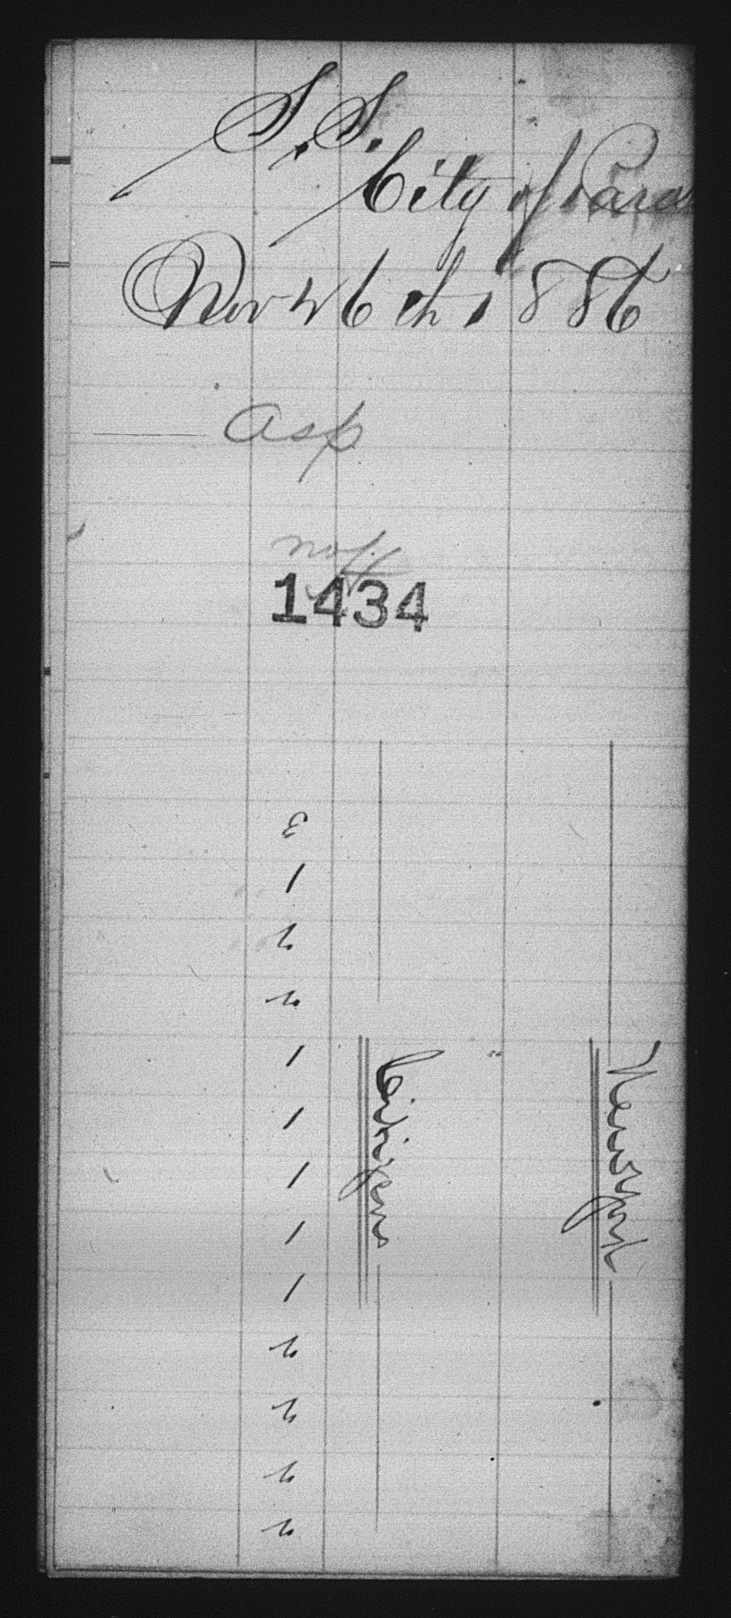 S.S.
City of Para
Nov 26th 1886
Asp
1434
3
1
2
2
1
1
1
1
1
2
2
2
2
Citizens
New york